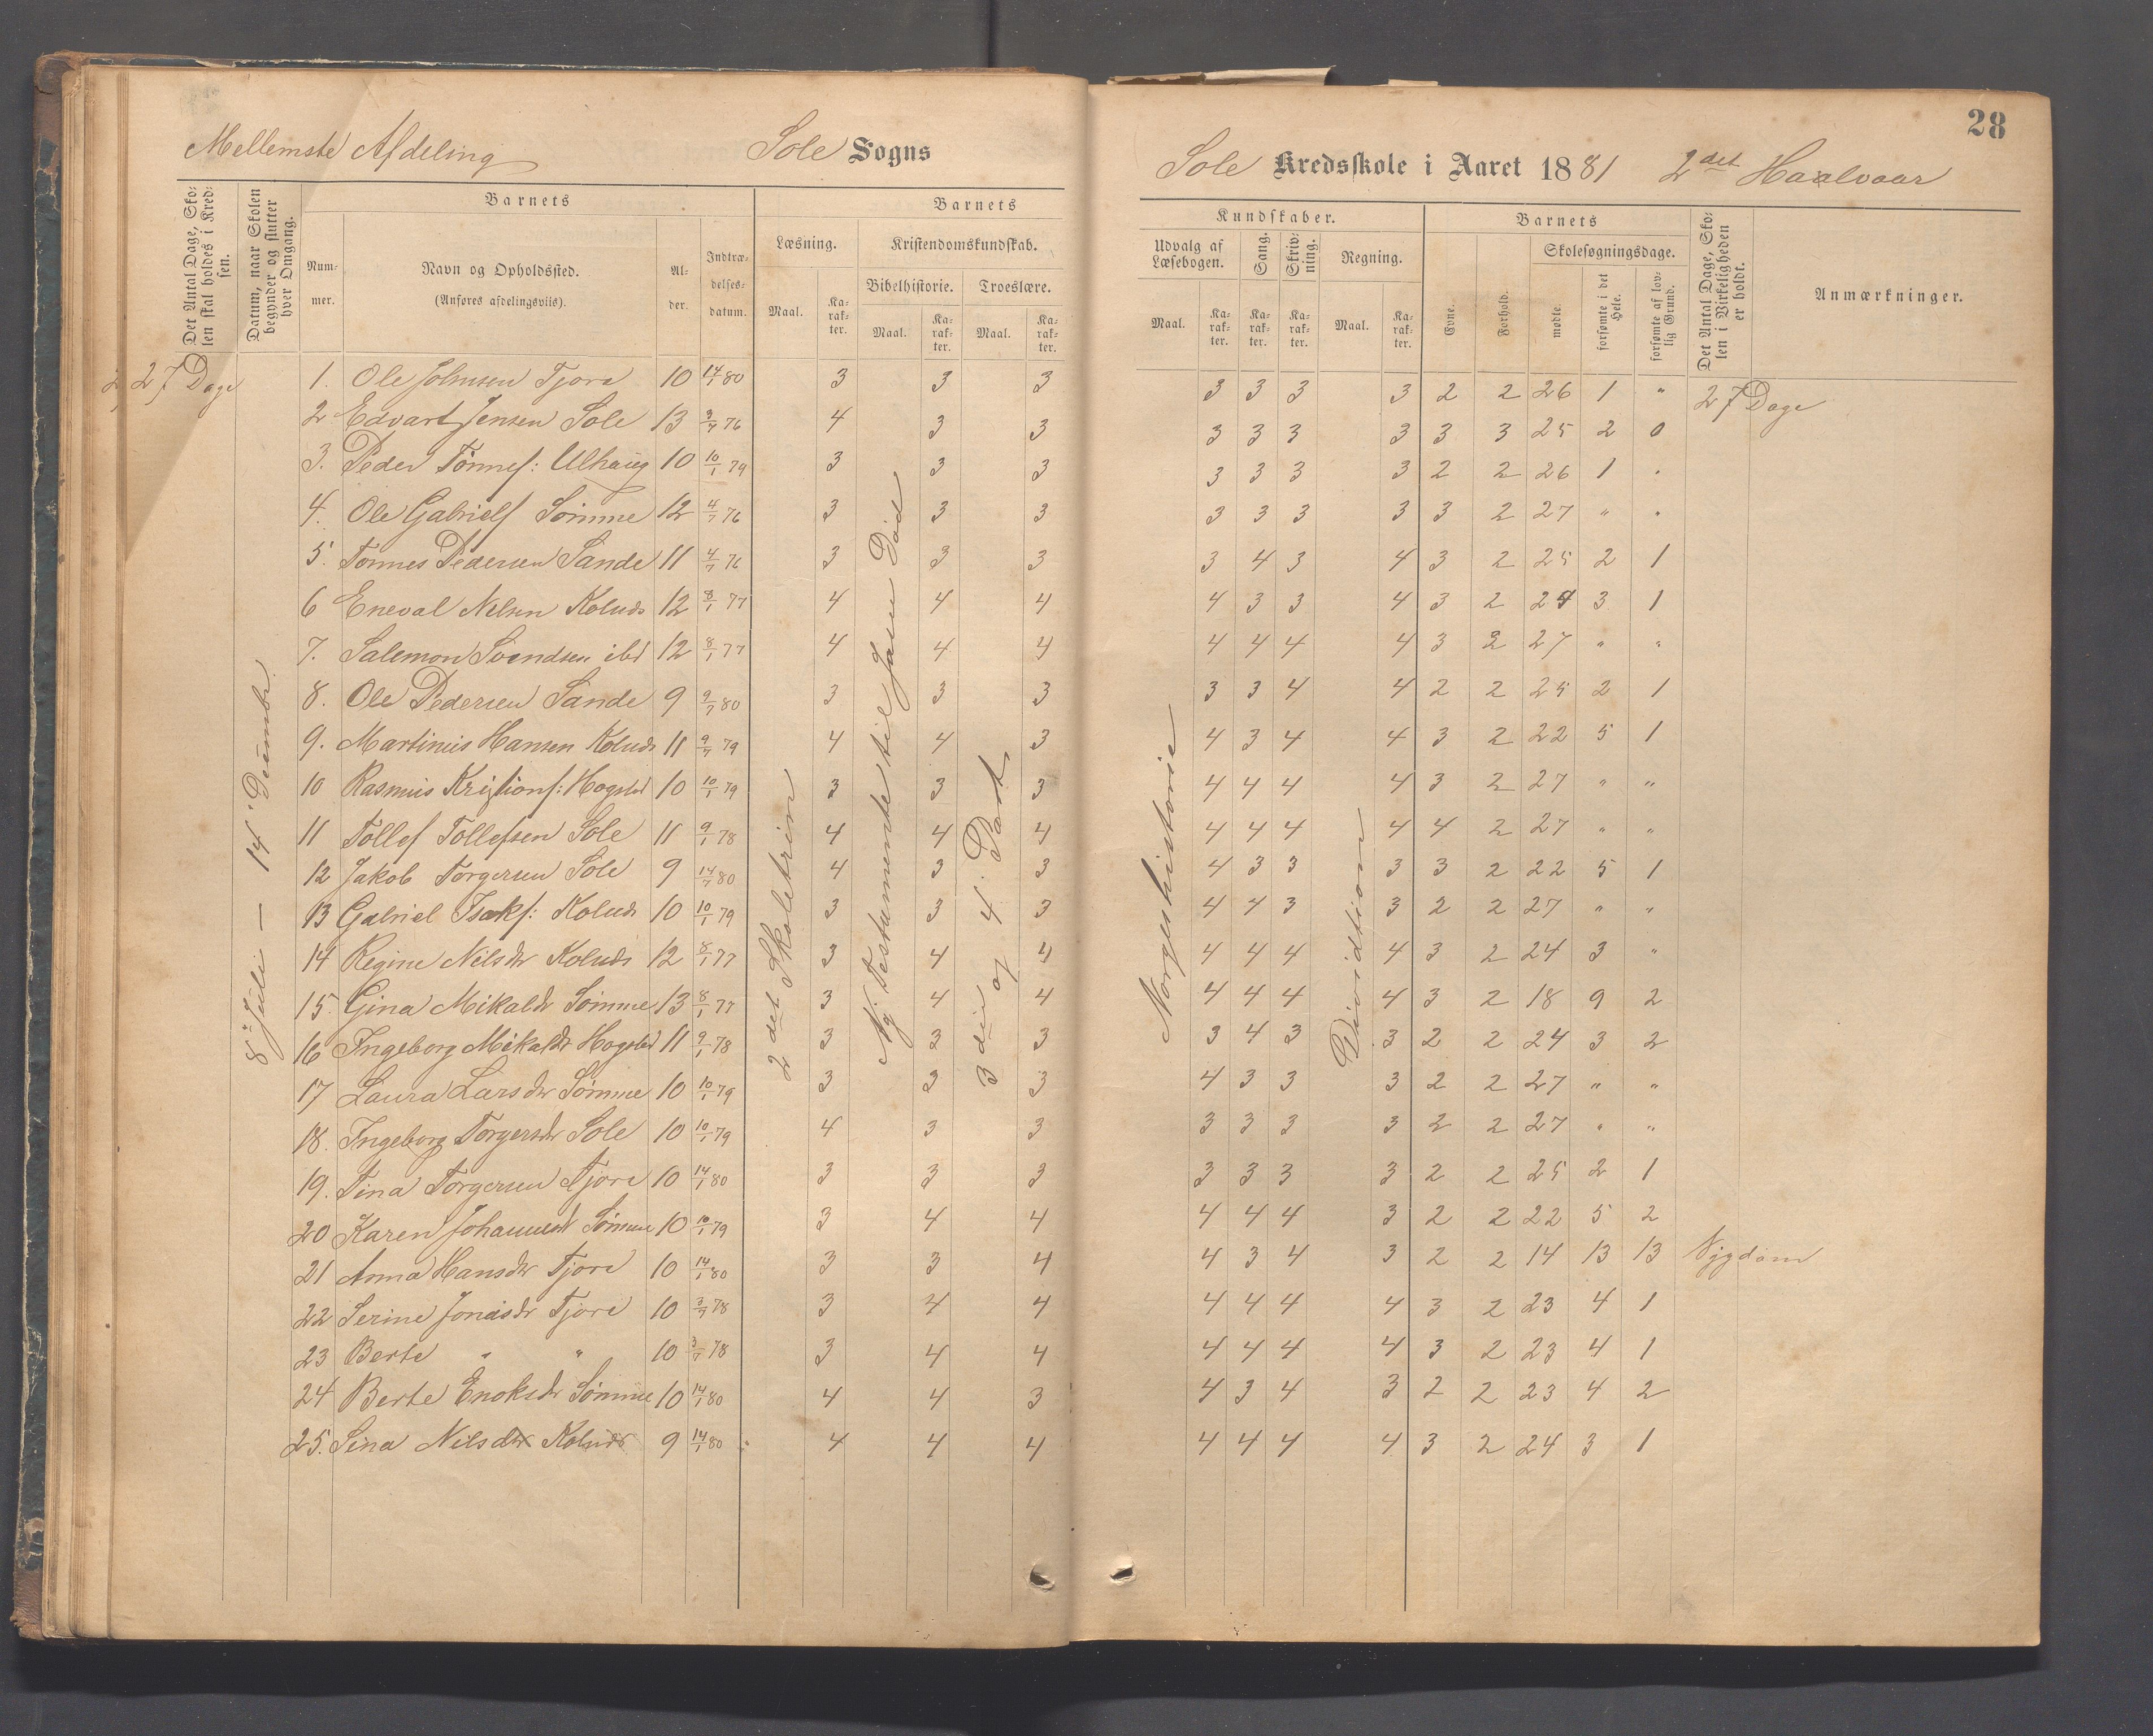 28
Mellemste Afdeling Sole Sogns
Sole Kredsskole i Aaret 1881 2det Haalvaar
Det Antal Dage, Skolen skal holdes i Kredsen.
Datum, naar Skolen begynder og slutter hver Omgang.
Barnets
Nummer.
Navn og Opholdssted.
(Anføres afdelingsviis).
Alder.
Indtrædelsesdatum.
Barnets
Læsning.
Maal.
Karakter.
Kristendomskundskab.
Bibelhistorie.
Maal.
Karakter.
Troeslære.
Maal.
Karakter.
Kundskaber.
Udvalg af Læsebogen.
Maal.
Karakter.
Sang.
Karakter.
Skrivning.
Karakter.
Regning.
Maal.
Karakter.
Barnets
Evne.
Forhold.
Skolesøgningsdage.
mødte.
forsømte i det Hele.
forsømte af lovlig Grund.
Det Antal Dage, Skolen i Virkeligheden er holdt.
Anmærkninger.
27 Dage
8de Juli — 14 Decembr.
2det Skoletrin
Ny Testamente til Jesu Død
3die og 4. Part
Norgeshistorie
Division
1. Ole Johnsen Tjora 10 14/1 80 3 3 3 3 3 3 3 2 2 26 1 " 27 Dage
2 Edvart Jensen Sole 13 3/7 76 4 3 3 3 3 3 3 3 3 25 2 0
3. Peder Tønnes: Ulhaug 10 10/1 79 3 3 3 3 3 3 3 2 2 26 1 .
4. Ole Gabriels Sømme 12 4/7 76 3 3 3 3 3 3 3 3 2 27 " "
5. Tønnes Pedersen Sande 11 4/7 76 3 3 3 3 4 3 4 3 2 25 2 1
6 Eneval Nelsen Kolnds 12 8/1 77 4 4 4 4 3 3 4 3 2 24 3 1
7. Salemon Svendsen ibd 12 8/1 77 4 4 4 4 4 4 4 3 2 27 " "
8. Ole Pedersen Sande 9 9/7 80 3 3 3 3 3 4 4 2 2 25 2 1
9. Martinius Hansen Kolnds 11 9/7 79 4 4 3 4 3 4 4 3 2 22 5 1
10 Rasmus Kristians: Hogsted 10 10/1 79 3 3 3 4 4 4 4 3 2 27 " "
11 Tollef Tollefsen Sole 11 9/1 78 4 4 4 4 4 4 4 4 2 27 " "
12 Jakob Torgersen Sole 9 14/7 80 4 3 3 4 3 3 3 3 2 22 5 1
13 Gabriel Isaks: Kolnds 10 10/1 79 3 3 3 4 4 3 3 2 2 27 " "
14 Regine Nilsdr Kolnds 12 8/1 77 3 4 4 4 4 4 4 3 2 24 3 "
15. Gina Mikaldr Sømme 13 8/1 77 3 4 4 4 4 4 4 3 2 18 9 2
16 Ingeborg Mikaldr Hogsted 11 9/1 78 3 3 3 3 4 3 3 2 2 24 3 2
17 Laura Larsdr Sømme 10 10/1 79 3 3 3 4 3 3 3 2 2 27 " "
18. Ingeborg Torgersdr Sole 10 10/1 79 4 3 3 3 3 3 3 2 2 27 " "
19. Tina Torgersen Tjora 10 14/1 80 3 3 3 3 3 3 3 2 2 25 2 1
20 Karen Johannesdr Sømme 10 10/1 79 3 4 4 4 4 4 3 2 2 22 5 2
21 Anna Hansdr Tjora 10 14/1 80 3 3 4 4 3 4 3 2 2 14 13 13 Sygdom
22 Serine Jonasdr Tjora 10 3/7 78 3 4 4 4 4 4 4 3 2 23 4 1
23 Berte " " 10 3/7 78 3 4 4 4 4 4 4 3 2 23 4 1
24 Berte Enoksdr Sømme 10 14/1 80 4 4 3 4 3 4 3 2 2 23 4 2
25. Sina Nilsdr Kolnds 9 14/1 80 4 4 4 4 4 4 4 3 2 24 3 1